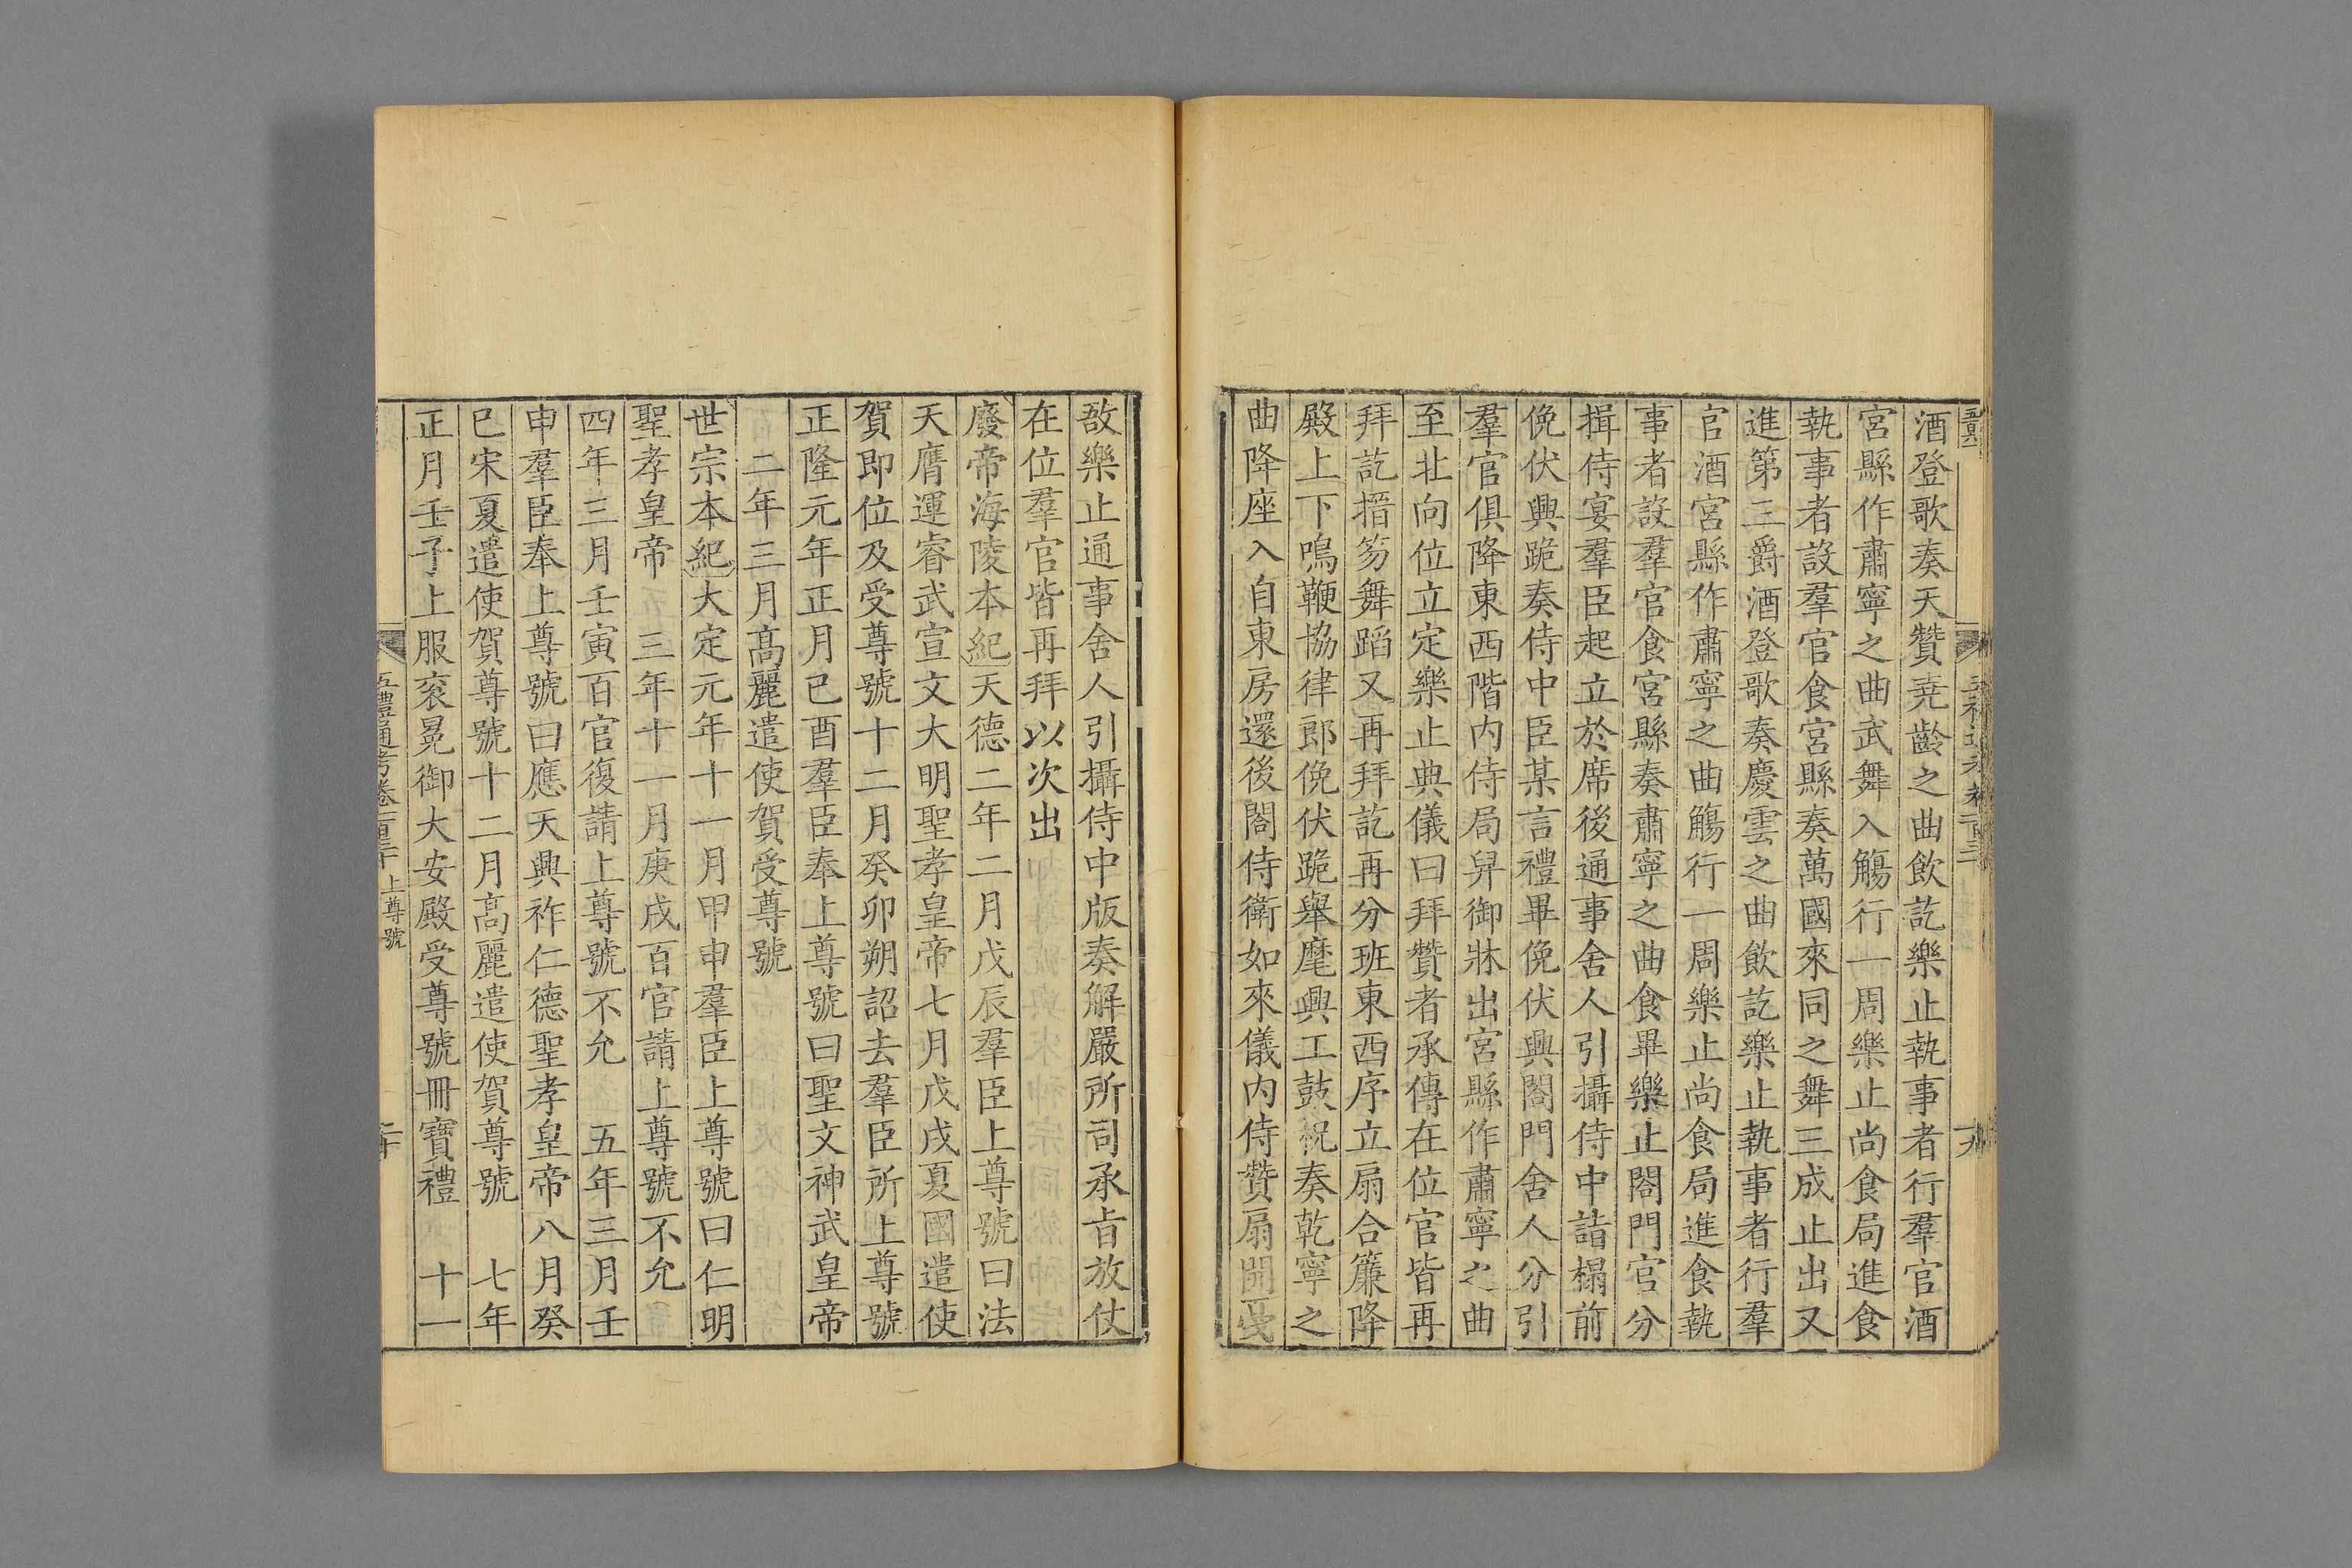 酒登歌奏天贊堯齡之曲飲訖樂止執事者行羣官酒
宮縣作肅寧之曲武舞入觴行一周樂止尚食局進食
執事者設羣官食宮縣奏萬國來同之舞三成止出又
進第三爵酒登歌奏慶雲之曲飲訖樂止執事者行羣
官酒宮縣作肅寧之曲觴行一周樂止尚食局進食執
事者設羣官食宮縣奏肅寧之曲食畢樂止閤門官分
揖侍宴羣臣起立於席後通事舍人引攝侍中詣榻前
俛伏興跪奏侍中臣某言禮畢俛伏興閤門舍人分引
羣官俱降東西階内侍局舁御牀出宮縣作肅寧之曲
至北向位立定樂止典儀曰拜贊者承傳在位官皆再
拜訖搢笏舞蹈又再拜訖再分班東西序立扇合簾降
殿上下鳴鞭協律郎俛伏跪舉麾興工鼓柷奏乾寧之
曲降座入自東房還後閤侍衛如來儀内侍贊扇開戞
敔樂止通事舍人引攝侍中版奏解嚴所司承旨放仗
在位羣官皆再拜以次出
廢帝海陵本紀天德二年二月戊辰羣臣上尊號曰法
天膺運睿武宣文大明聖孝皇帝七月戊戌夏國遣使
賀即位及受尊號十二月癸卯朔詔去羣臣所上尊號
正隆元年正月己酉羣臣奉上尊號曰聖文神武皇帝
二年三月高麗遣使賀受尊號
世宗本紀大定元年十一月甲申羣臣上尊號曰仁明
聖孝皇帝　三年十一月庚戌百官請上尊號不允
四年三月壬寅百官復請上尊號不允　五年三月壬
申羣臣奉上尊號曰應天興祚仁德聖孝皇帝八月癸
巳宋夏遣使賀尊號十二月高麗遣使賀尊號　七年
正月壬子上服袞冕御大安殿受尊號冊寶禮　十一
五禮通考卷一百三十 上尊號
二十